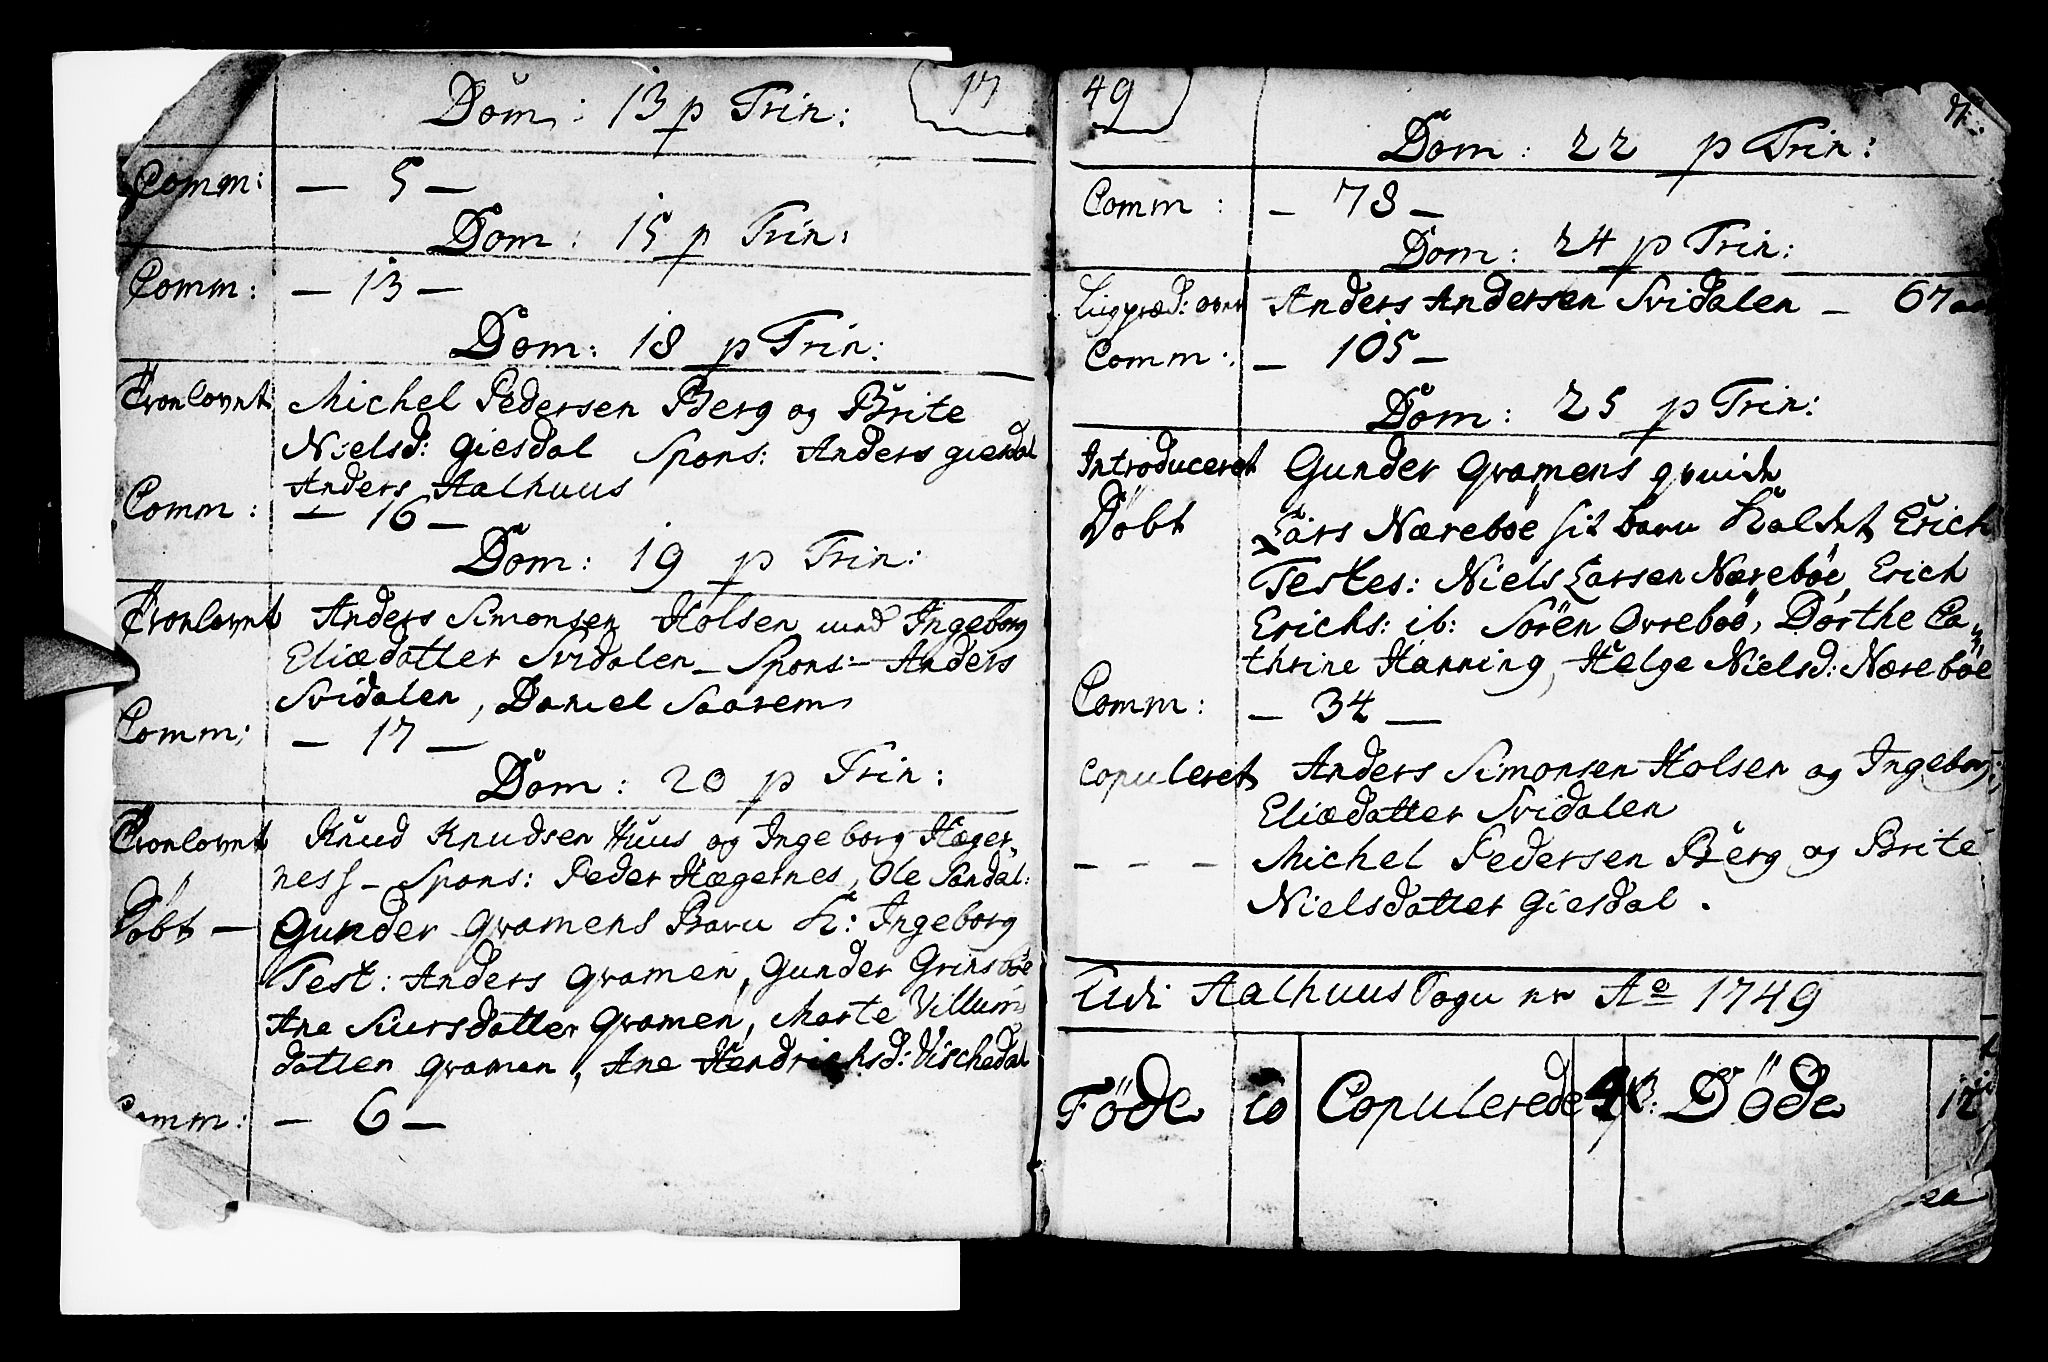 17
Dom: 13 p Trin:
Comm: — 5 —
Dom: 15 p Trin:
Comm: — 13 —
Dom: 18 p Trin:
Tronlovnt Michel Pedersen Berg og Brite
Nielsd: Giesdal Spons: Anders giesdal
Anders Aalhuus
Comm: — 16 —
Dom: 19 p Trin:
Tronlovnt Anders Simonsen Holsen med Ingeborg
Eliædatter Svidalen — Spons: Anders
Svidalen, Daniel Saarem
Comm: — 17 —
Dom: 20 p Trin:
Tronlovnt Knud Knudsen Huus og Ingeborg Hæger-
ness — Spons: Peder Hægernes, Ole Sandal:
Döbt — Gunder qvamens Barn K: Ingeborg
Test: Anders qvamen, Gunder Grinsböe
Ane Siursdatter qvamen, Marte Villums
datter qvamen, Ane Hendrichsd: Vischedal
Comm: — 6 —
49
Dom: 22 p Trin:
Comm: — 78 —
Dom: 24 p Trin:
Liigpræd: over Anders Andersen Svidalen — 67 aar
Comm: — 105 —
Dom: 25 p Trin:
Introduceret Gunder qvamens qvinde
Döbt Lars Næreböe sit barn kaldet Erich
Testes: Niels Larsen Næreböe, Erich
Erichs: ib: Sören Ovreboö, Dorthe Ca-
thrine Hanning, Helge Nielsd: Næreböe
Comm: — 34 —
Copuleret Anders Simonsen Holsen og Ingeborg
Eliædatter Svidalen
— — — Michel Pedersen Berg og Brite
Nielsdatter Giesdal.
Udi Aalhuus Sogn er Ao 1749
Föde 10 Copulerede 4 P: Döde 12